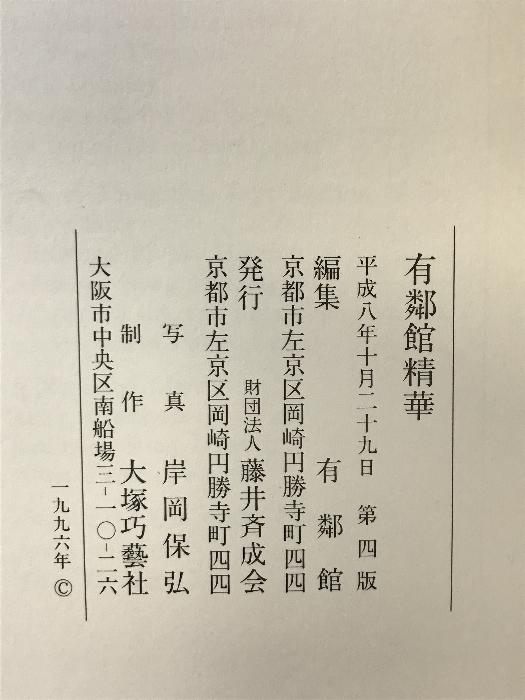 有鄰館精華
平成八年十月二十九日　第四版
編集　有鄰館
京都市左京区岡崎円勝寺町四四
発行　財団法人　藤井斉成会
京都市左京区岡崎円勝寺町四四
写真　岸岡保弘
制作　大塚巧藝社
大阪市中央区南船場三−一〇−二六
一九九六年　©